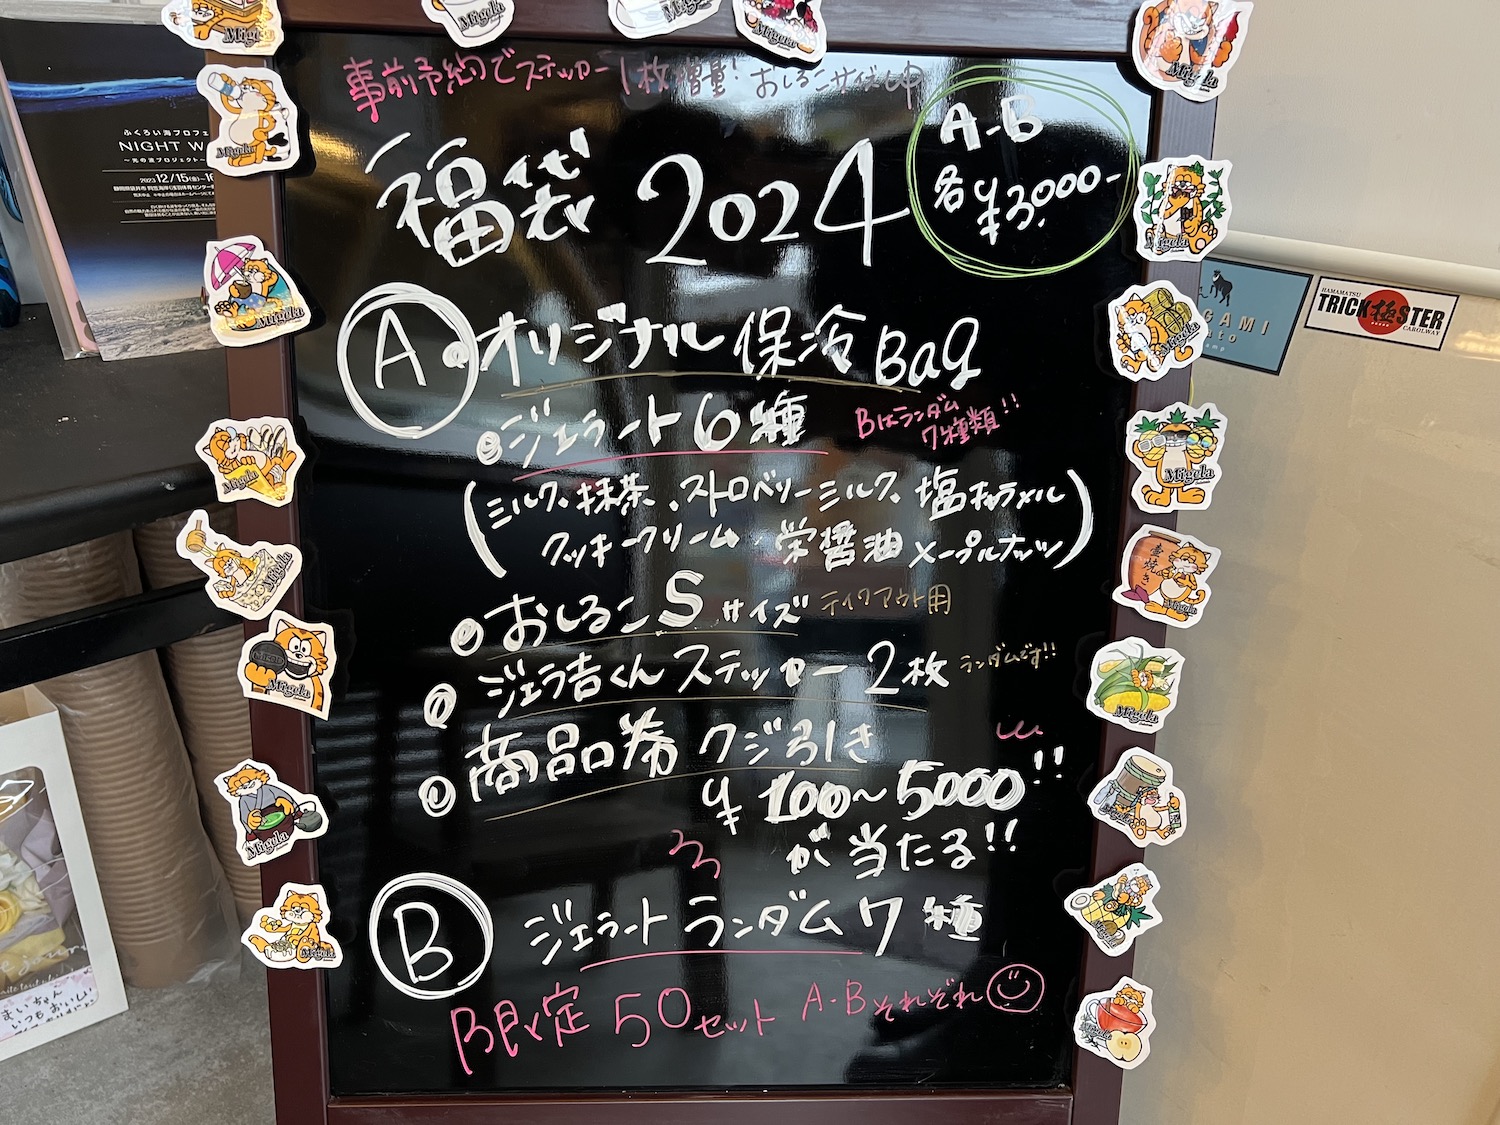 事前予約でステッカー1枚増量! おしるこサイズUP
福袋 2024
A-B
各¥3,000-
A ・オリジナル 保冷 Bag
・ジェラート6種
Bはランダム
7種類!!
(ミルク、抹茶、ストロベリーミルク、塩キャラメル
クッキークリーム、栄醤油メープルナッツ)
・おしるこSサイズ テイクアウト用
・ジェラ吉くんステッカー2枚 ランダムです!!
・商品券 クジ引き
¥100～5000!!
が当たる!!
B ジェラートランダム7種
限定 50セット A-Bそれぞれ
ふくろい海プロフェ
NIGHT W
～光の波プロジェクト～
2023 12/15(金)
HAMAMATSU
TRICK極STER
CAROLWAY
GAMI
Migela
壷焼き
まいちゃん
いつもおいしい